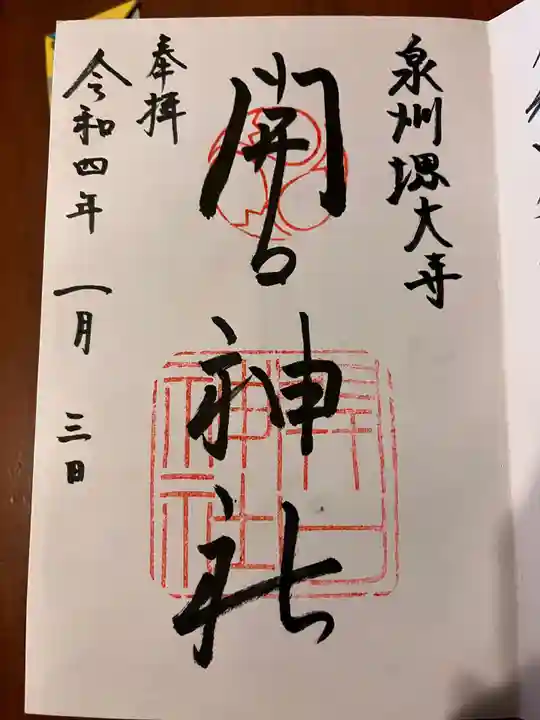 泉州堺大寺
開口神社
開口神社
奉拝
令和四年 一月 三日